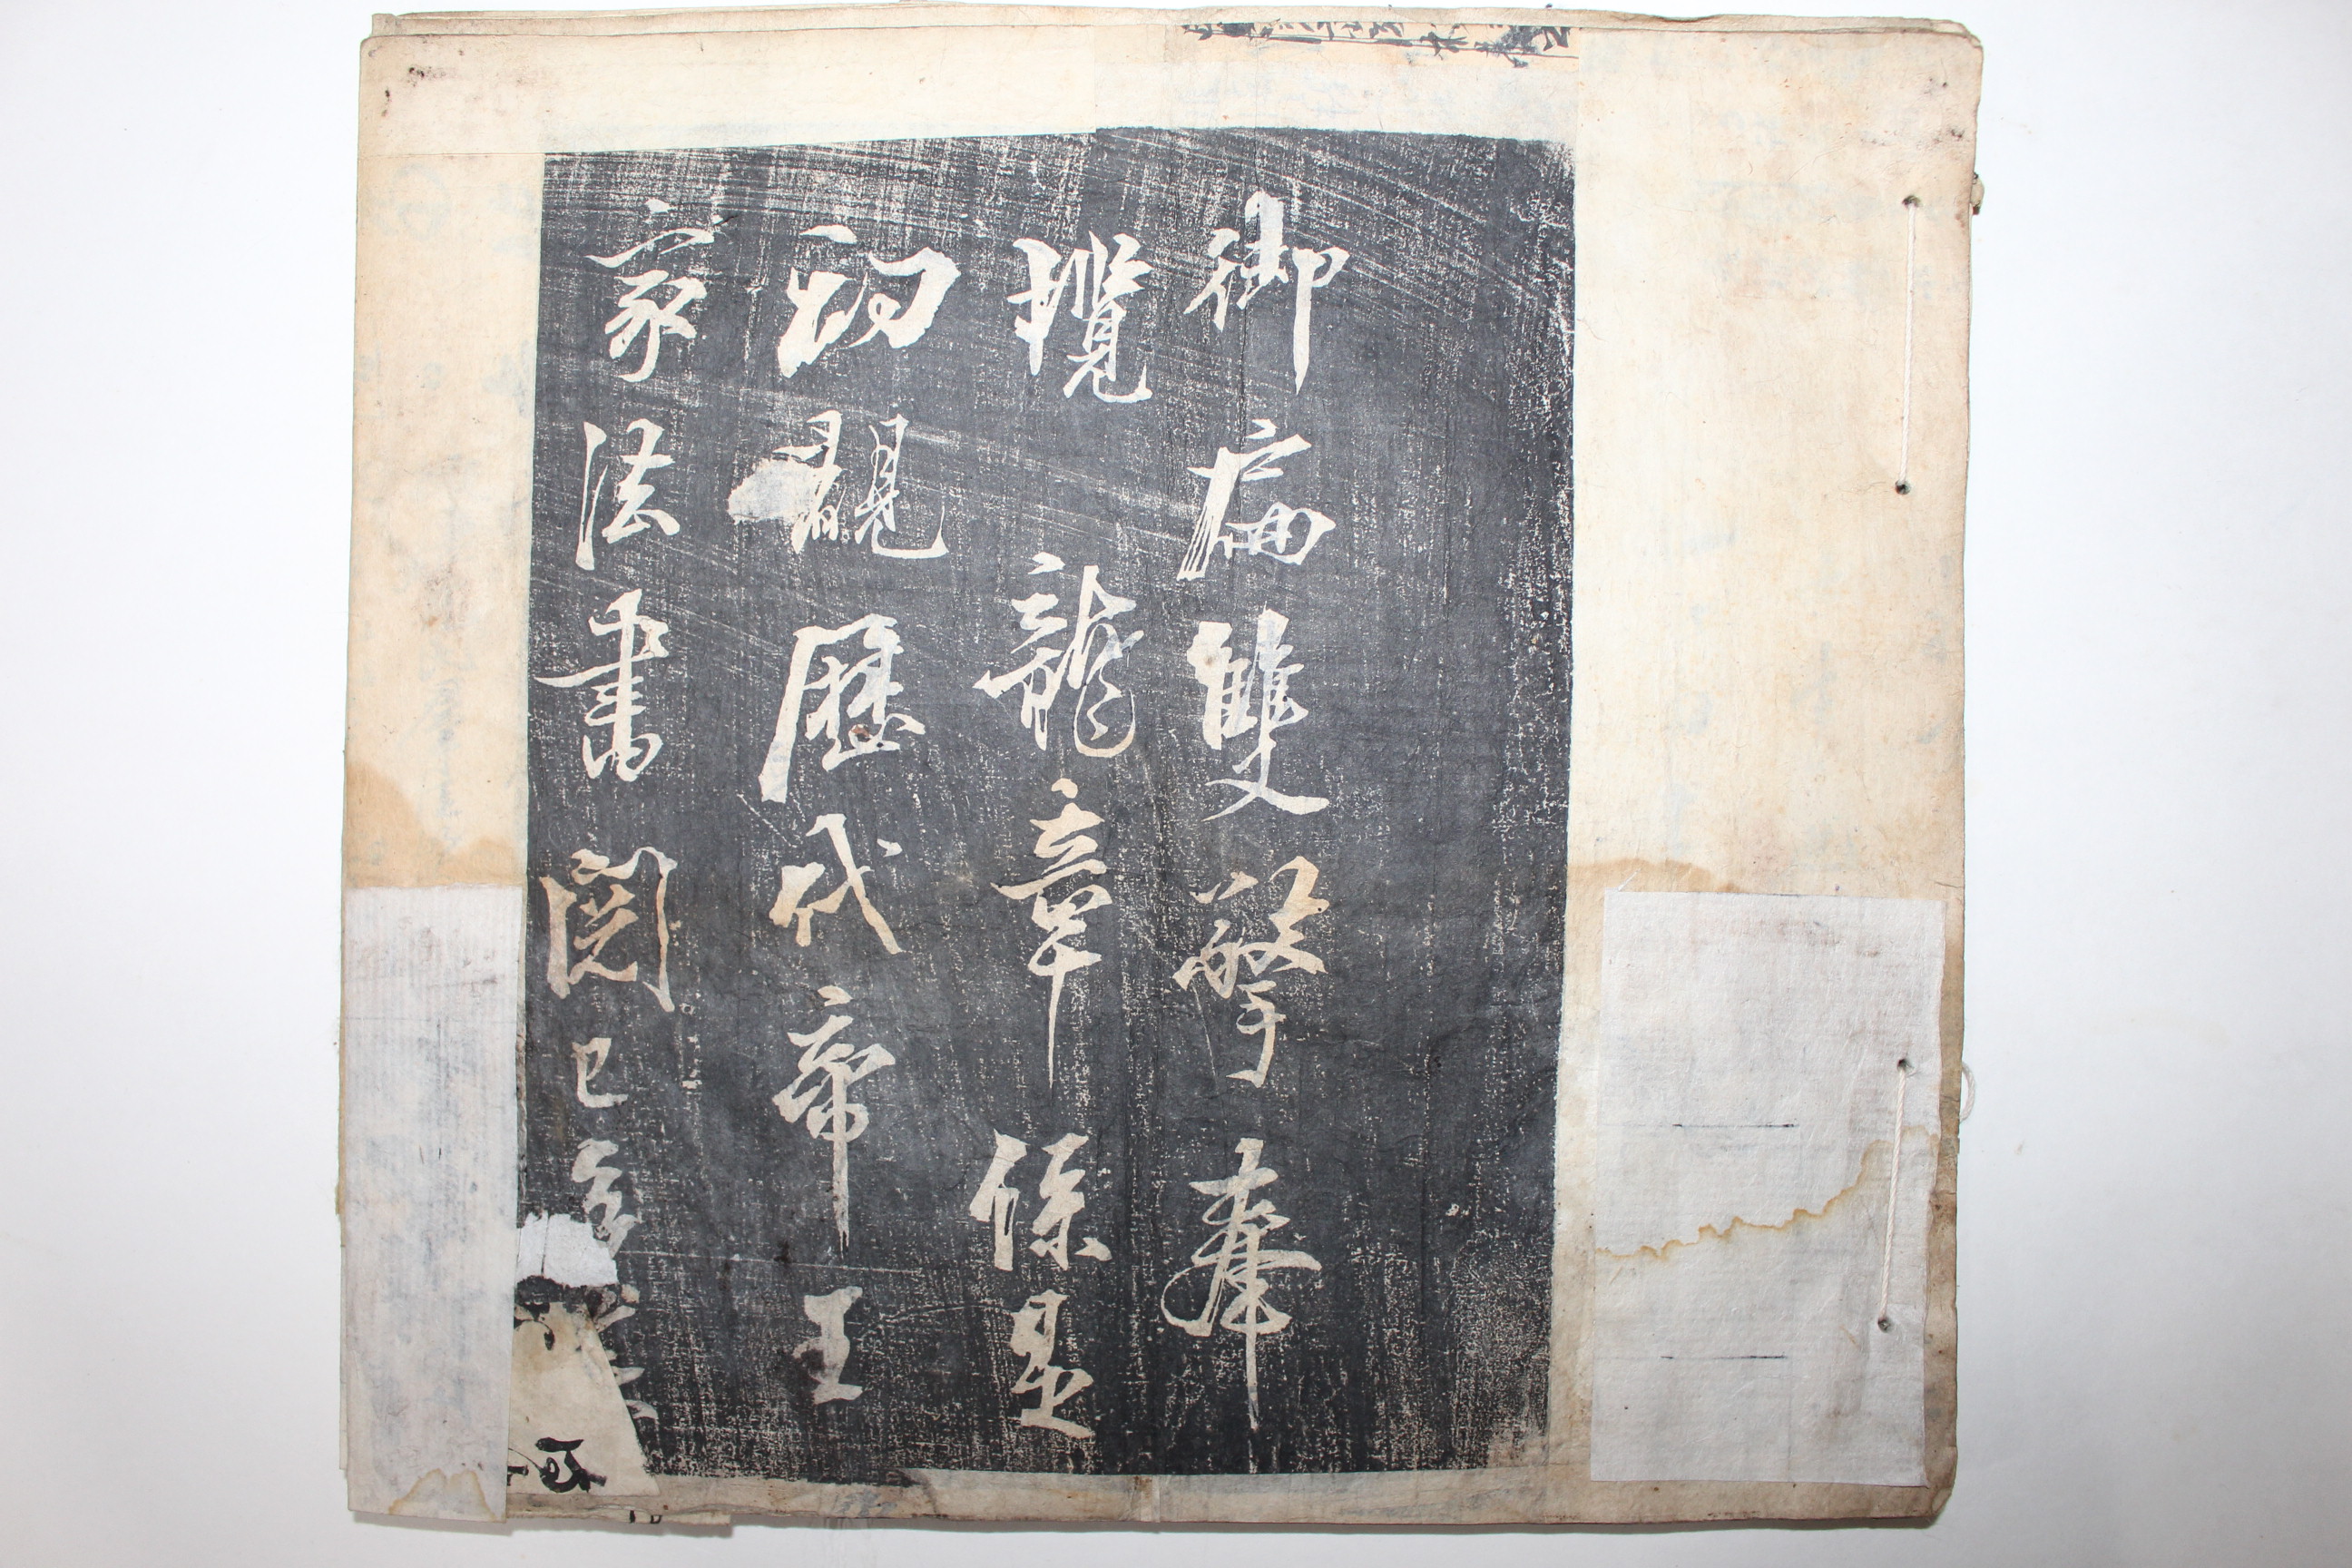 御扁雙擎奉
攬龍章條是
初觀歷代帝王
家法書閱已